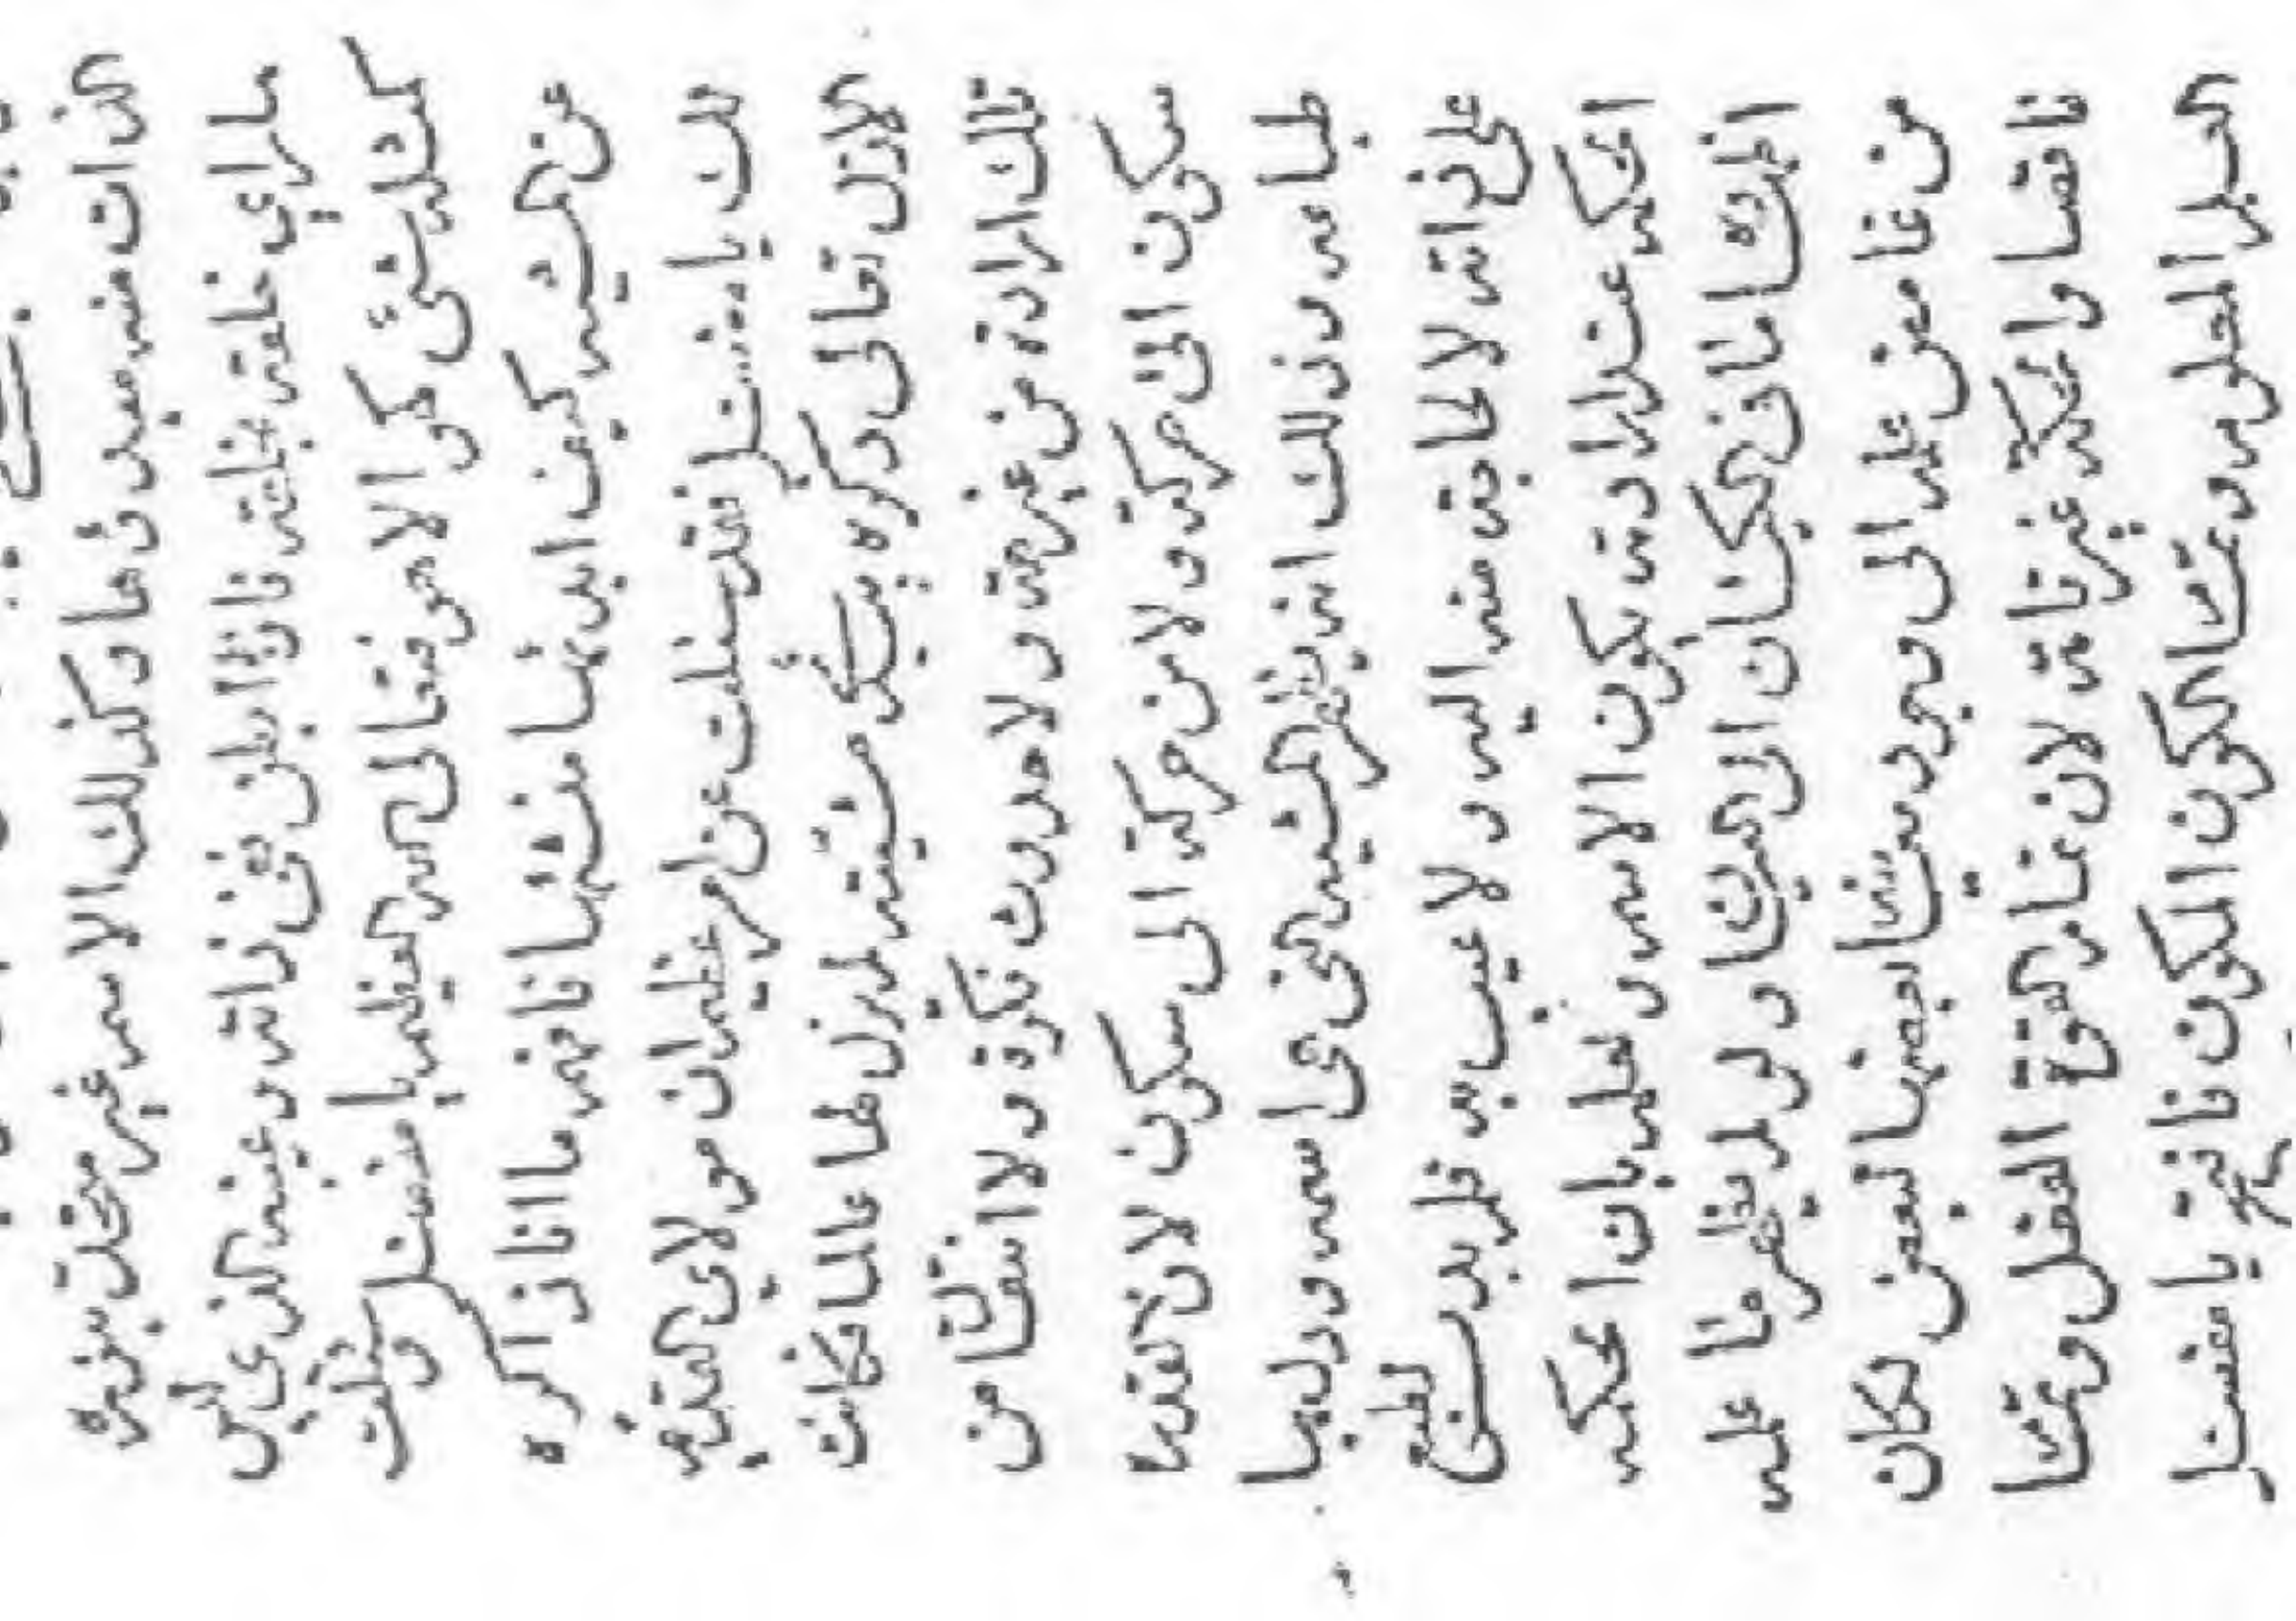 الذات منه مبدوها وكذلك الاسم غير محتلت بنوره
ما راى خلقته بخلقته فاذا ابطن فى ذاته وغيبه الذى ليس
كمثله شىء كوا الا هو فتعالى العظيم يا مفضل وقلت
عن المشيه كيف ابداها منشيها فافهم ما انا ذاكره
لك يا مفضل فقد سئلت عن امر عظيم ان مولاى القديم
الازل تعالى ذكره مشيته لم يزل لها عالما فكانت
تلك ارادة من غير همة ولا حدوث فكرة ولا انتقال من
سكون الى حركة ولا من حركة الى سكون لان القدرة
طباعه وذلك انه يظهر المشيه التى هى اسمه ودل بها
على ذاته لا لحاجته منه اليه ولا غيب به فلما بدت
الحكمه عند ارادته يكون الاسم وعلم بان الحكمه
اظهار ما فى الكيان الى العيان ولو لم يظهر ما علمه
من غامض علمه الى وجود معاينة بعضها لبعض لكان
ناقصا والحكمه غير تامة لان تمام القوة الفعل وتمام
العلم المعلوم وتمام الكون المكون فانه يا مفضل